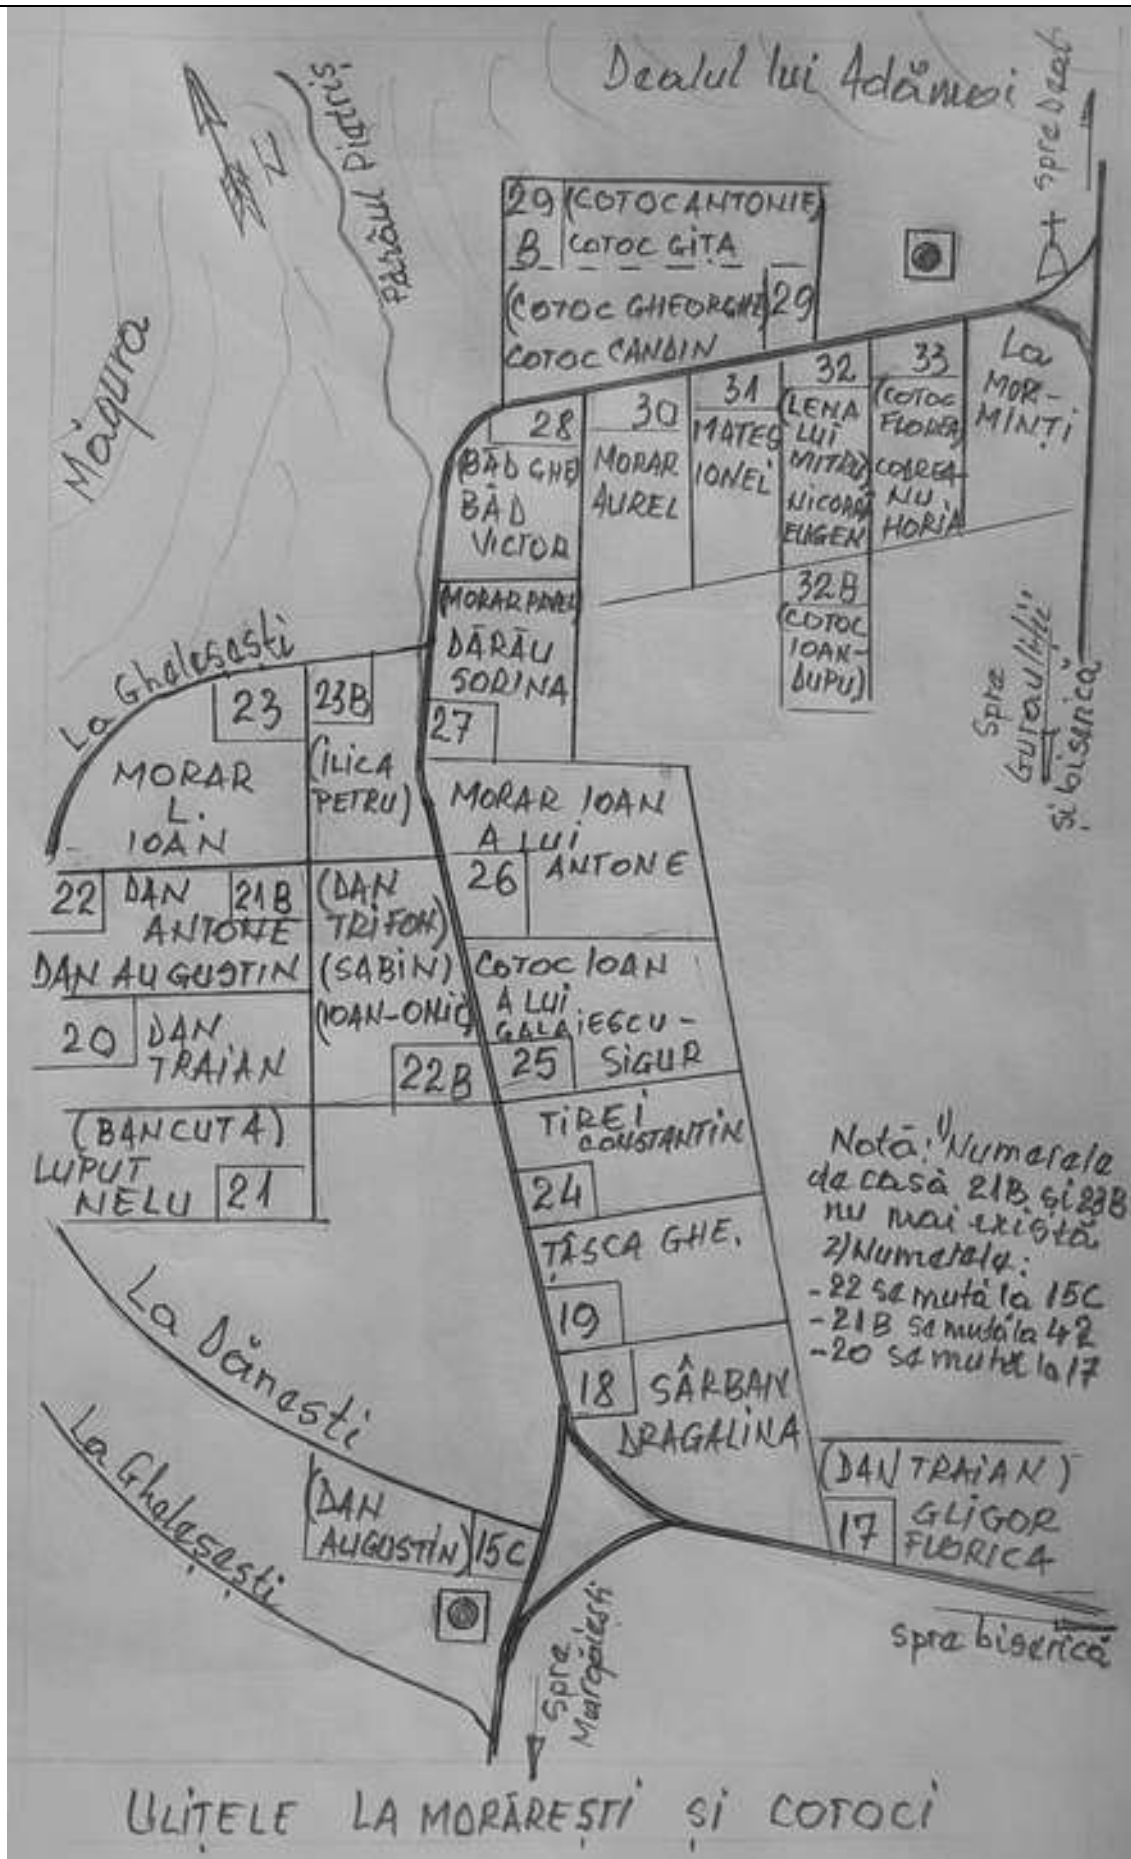 Dealul lui Adămoi
spre Deal
Pârâul Pietriș
N
Măgura
29 (COTOC ANTONIE)
B COTOC GIȚA
(COTOC GHEORGHE) 29
COTOC CANDIN
28
(BĂD GHE)
BĂD
VICTOR
30
MORAR
AUREL
31
MATEȘ
IONEL
32
(LENA
LUI
MITRU)
NICOARĂ
EUGEN
33
(COTOC
FLOREA)
CODREA-
NU
HORIA
La
MOR-
MINȚI
32B
(COTOC
IOAN-
DUPU)
(MORAR PAVEL)
DĂRĂU
SORINA
27
Spre
și biserică
La Ghelesești
23
MORAR
L.
IOAN
23B
(ILICA
PETRU)
MORAR IOAN
A LUI
26 ANTONE
22 DAN 21B
ANTONE
DAN AUGUSTIN
(DAN
TRIFON)
(SABIN)
22B
COTOC IOAN
A LUI
GALAIESCU-
25 SIGUR
20 DAN
TRAIAN
(BANCUTA)
LUPUT
NELU 21
TIREI
CONSTANTIN
24
ȚÂȘCA GHE.
19
18 SÂRBAN
DRAGALINA
Notă: 1) Numerele
de casă 21B și 23B
nu mai există
2) Numerele:
-22 se mută la 15C
-21B se mută la 42
-20 se mută la 17
La Dănești
La Ghelesești
(DAN
AUGUSTIN) 15C
(DAN TRAIAN)
17 GLIGOR
FLORICA
spre biserică
Spre
ULIȚELE LA MORĂREȘTI ȘI COTOCI